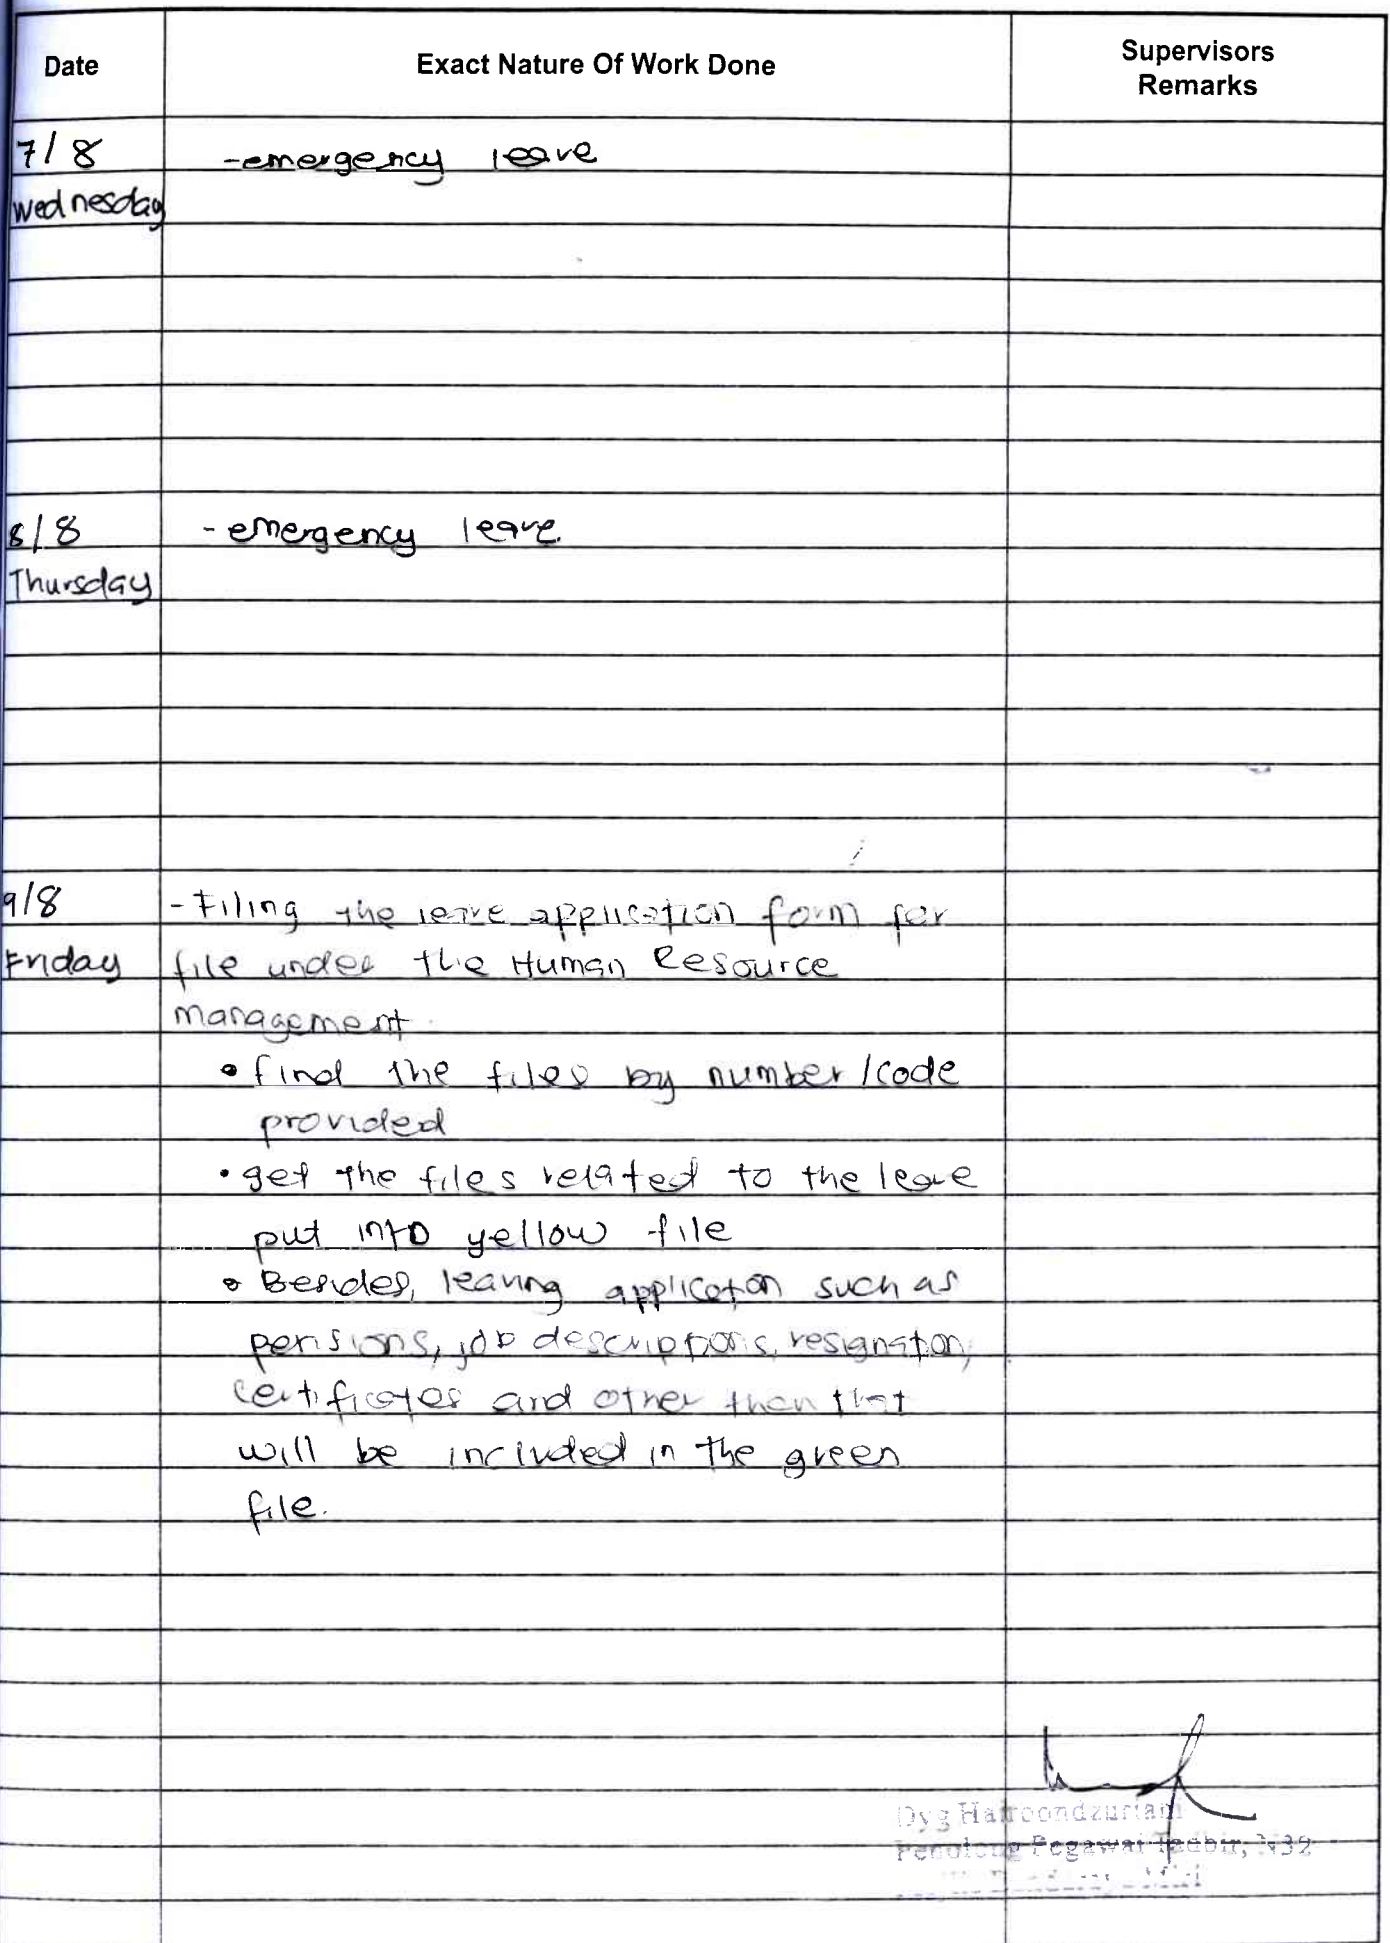 Date Exact Nature Of Work Done Supervisors
Remarks
7/8 -emergency leave
Wednesday
8/8 - emergency leave.
Thursday
9/8 - Filing the leave application form for
Friday file under the Human Resource
management.
• find the files by number/code
provided
• get the files related to the leave
put into yellow file
• Besides, leaving application such as
pensions, job descriptions, resignation,
certificates and other than that
will be included in the green
file.
Dyg Hairoondzuriani
Penolong Pegawai Tadbir, N32
Miri